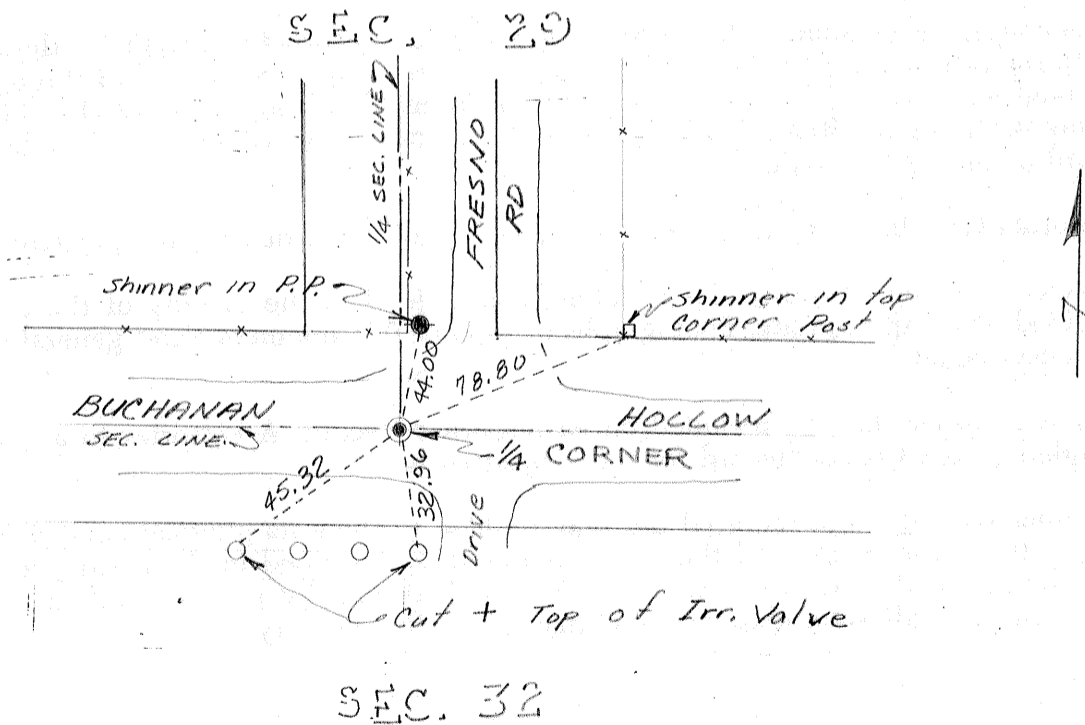 SEC. 29
1/4 SEC. LINE
FRESNO
RD
shinner in P.P.
shinner in top
Corner Post
44.00
78.80
BUCHANAN
HOLLOW
SEC. LINE
1/4 CORNER
45.32
32.96
Drive
Cut + Top of Irr. Valve
SEC. 32